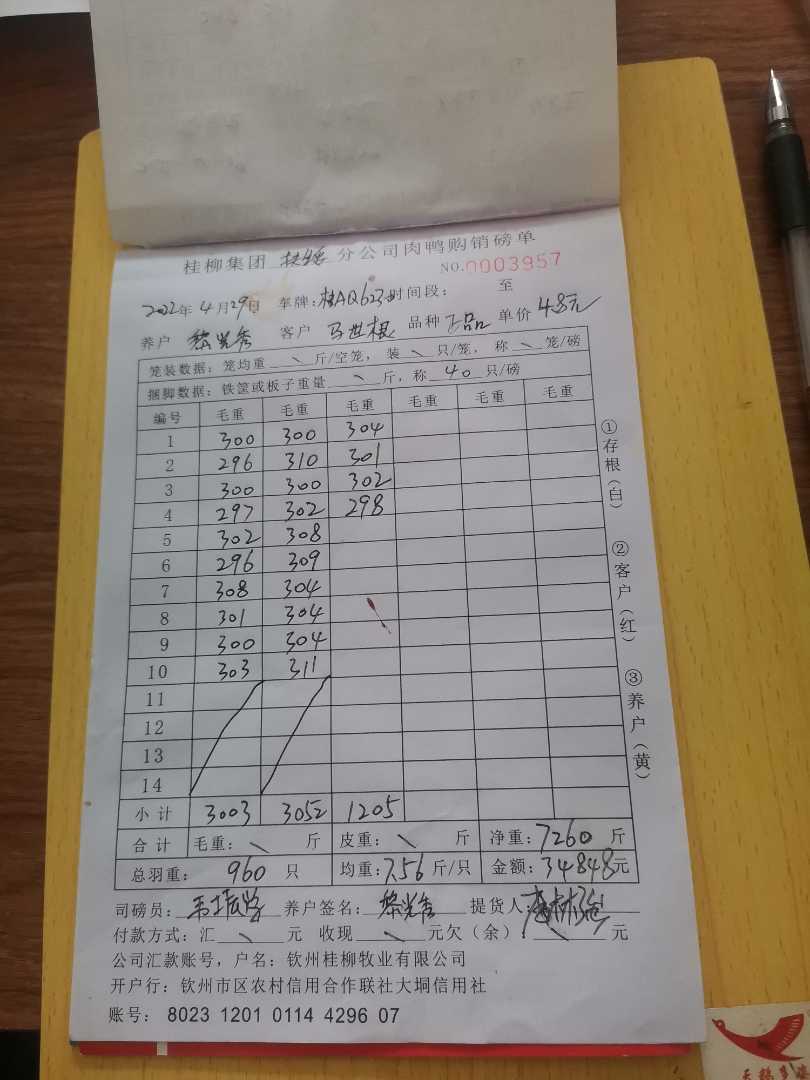 桂柳集团 扶绥 分公司肉鸭购销磅单
NO.0003957
2022年 4月29日 车牌:桂AQ623 时间段: 至
养户 黎光秀 客户 马世根 品种 正品 单价 4.8元
笼装数据:笼均重 \ 斤/空笼,装 \ 只/笼,称 \ 笼/磅
捆脚数据:铁筐或板子重量 \ 斤,称 40 只/磅
编号 毛重 毛重 毛重 毛重 毛重 毛重
1 300 300 304
2 296 310 301
3 300 300 302
4 297 302 298
5 302 308
6 296 309
7 308 304
8 301 304
9 300 304
10 303 311
11
12
13
14
小计 3003 3052 1205
合计 毛重: \ 斤 皮重: \ 斤 净重:7260 斤
总羽重: 960 只 均重:7.56 斤/只 金额:34848元
司磅员: 养户签名: 黎光秀 提货人:
付款方式:汇 \ 元 收现 \ 元欠(余): \ 元
公司汇款账号,户名:钦州桂柳牧业有限公司
开户行:钦州市区农村信用合作联社大垌信用社
账号: 8023 1201 0114 4296 07
①存根(白)
②客户(红)
③养户(黄)